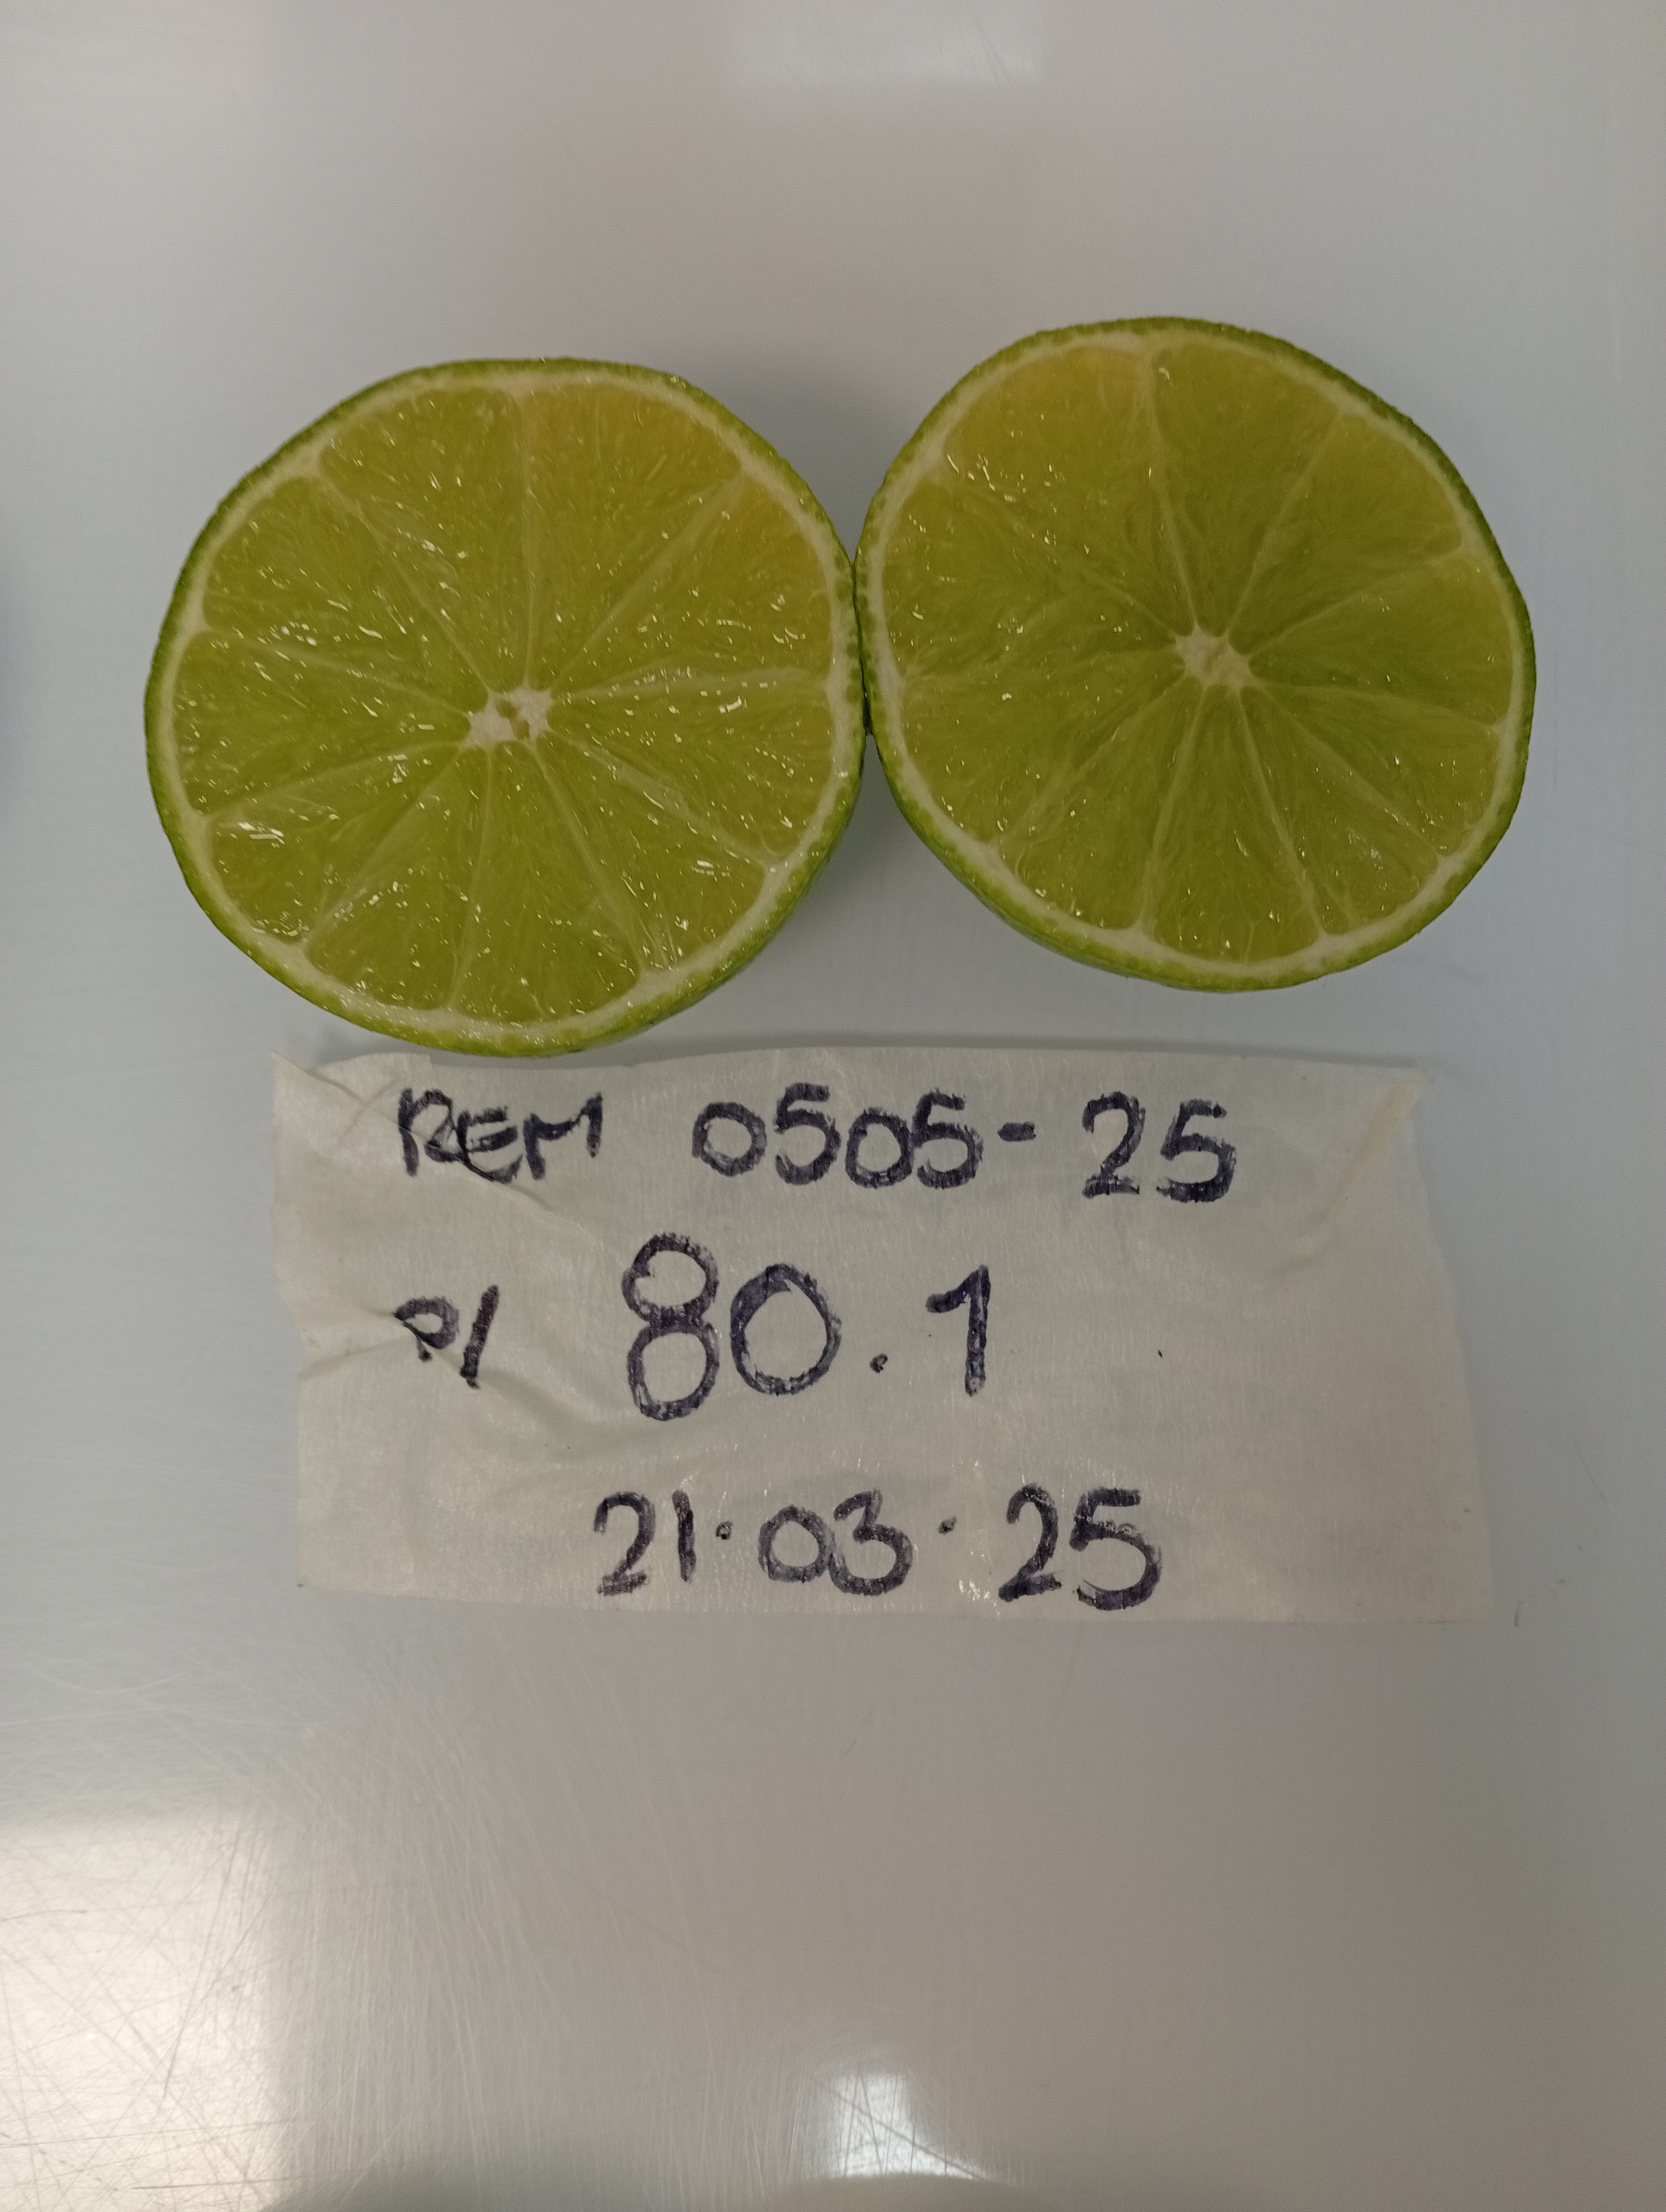 REM 0505-25
P/ 80.1
21.03.25